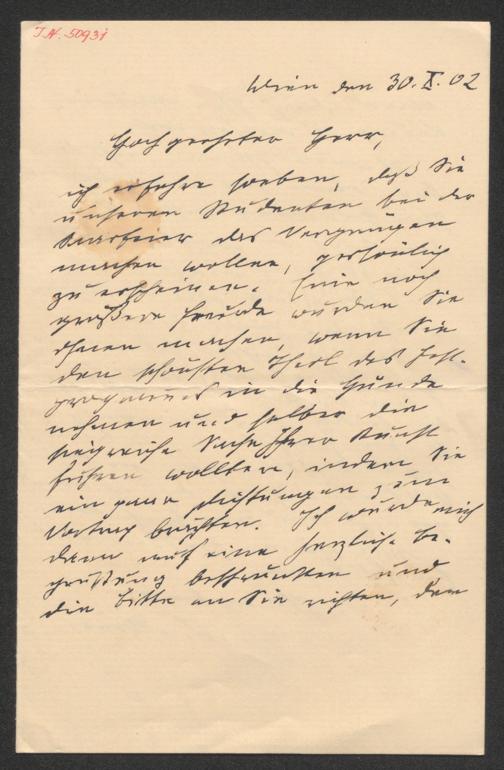 I.N. 50931
Wien den 30. X. 02
Hochgeehrter Herr,
ich erfahre soeben, daß Sie
unseren Studenten bei der
das Vergnügen
machen wollen, persönlich
zu erscheinen. Eine noch
größere Freude würden Sie
ihnen machen, wenn Sie
den schönsten Theil des Fest-
programmes in die Hände
nehmen und selber die
siegreiche Sache Ihrer Kunst
führen wollten, indem Sie
ein paar Dichtungen zum
Vortrag brächten. Ich würde mich
dann auf eine herzliche Be-
grüßung beschränken und
die Bitte an Sie richten, den